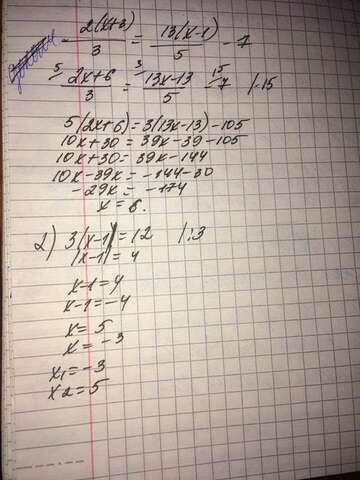 2(x+3)/3 = 13(x-1)/5 - 7
5 3 15
2x+6/3 = 13x-13/5 - 7 /·15
5(2x+6)=3(13x-13)-105
10x+30=39x-39-105
10x+30=39x-144
10x-39x=-144-30
-29x=-174
x=6.
2) 3|x-1|=12 /:3
|x-1|=4
x-1=4
x-1=-4
x=5
x=-3
x1=-3
x2=5